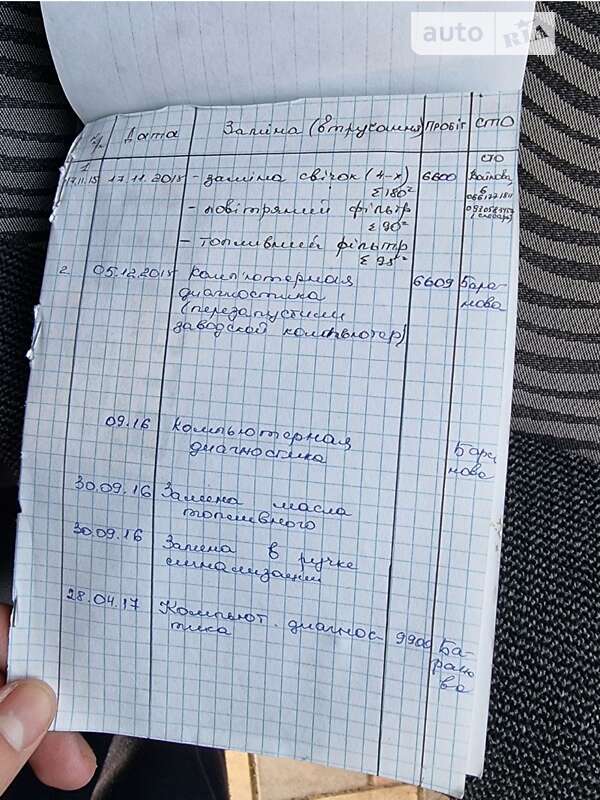 auto RIA
Дата Заміна (втручання) ПРОБІГ СТО
1 17.11.15 17.11.2015 - заміна свічок (4-х) 6600 СТО
Σ 180²
- повітряний фільтр
Σ 90²
- топливний фільтр
2. 05.12.2015 Комп'ютерная 6609 Бара-
диагностика нова
(перезапустили
заводской компьютер)
09.16 Компьютерная
диагностика
30.09.16 Замена масла
топливного
30.09.16 Замена в ручке
сигнализации
28.04.17 Компьют. диагнос- 9900 Ба-
тика рано
ва